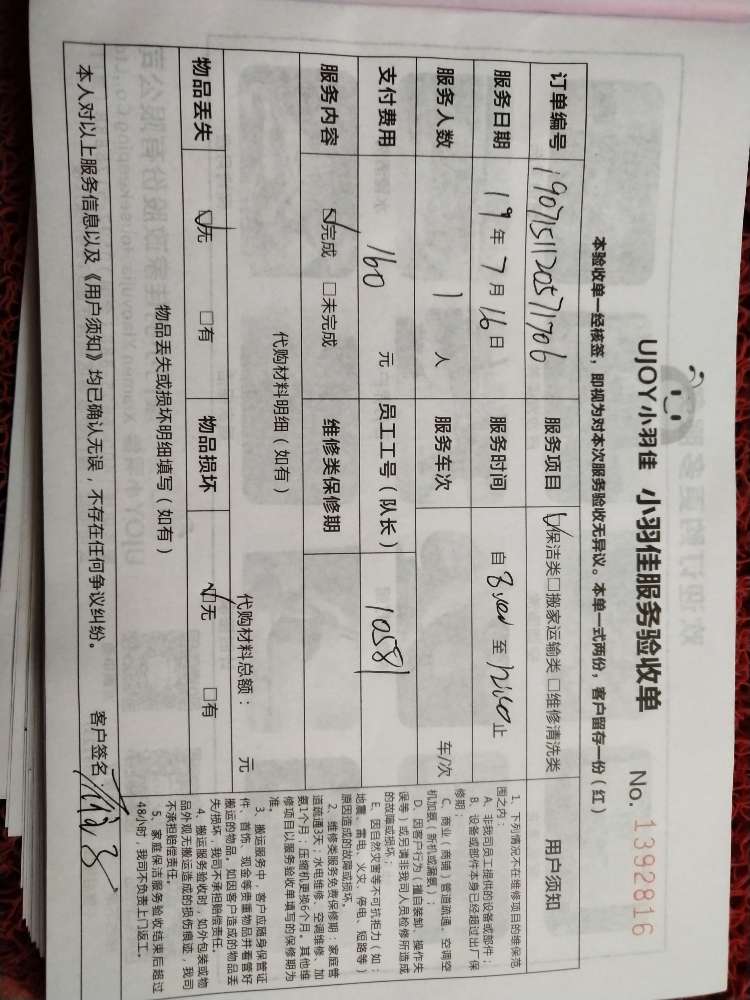 UJOY小羽佳 小羽佳服务验收单 No. 1392816
本验收单一经核签，即视为对本次服务验收无异议。本单一式两份，客户留存一份（红）
订单编号 190715112057111706 服务项目 ☑保洁类□搬家运输类□维修清洗类
服务日期 19年7月16日 服务时间 自 至 止
服务人数 1 人 服务车次 车/次
支付费用 160 元 员工工号（队长） 1058
服务内容 ☑完成 □未完成 维修类保修期
代购材料明细（如有）
代购材料总额： 元
物品丢失 ☑无 □有 物品损坏 ☑无 □有
物品丢失或损坏明细填写（如有）
本人对以上服务信息以及《用户须知》均已确认无误，不存在任何争议纠纷。 客户签名：
用户须知
1、下列情况不在维修项目的维保范
围之内：
A、非我司员工提供的设备或部件；
B、设备或部件本身已经超过出厂保
修期；
C、商业（商铺）管道疏通、空调空
机加氨（新机或漏氨）；
D、因客户行为（擅自装卸、操作失
误等）或另请非我司人员检修所造成
的故障或损坏；
E、因自然灾害等不可抗拒力（如：
地震、雷电、火灾、停电、短路等）
原因造成的故障或损坏。
2、维修类服务免费保修期：家庭管
道疏通3天；水电维修、空调维修、加
氨1个月；压缩机更换6个月。其他维
修项目以服务验收单填写的保修期为
准。
3、搬运服务中，客户应随身保管证
件、首饰、现金等贵重物品并看管好
搬运的物品。如因客户造成的物品丢
失/损坏，我司不承担赔偿责任。
4、搬运服务验收时，如外包装或物
品外观无搬运造成的损伤痕迹，我司
不承担赔偿责任。
5、家庭保洁服务验收结束后超过
48小时，我司不负责上门返工。